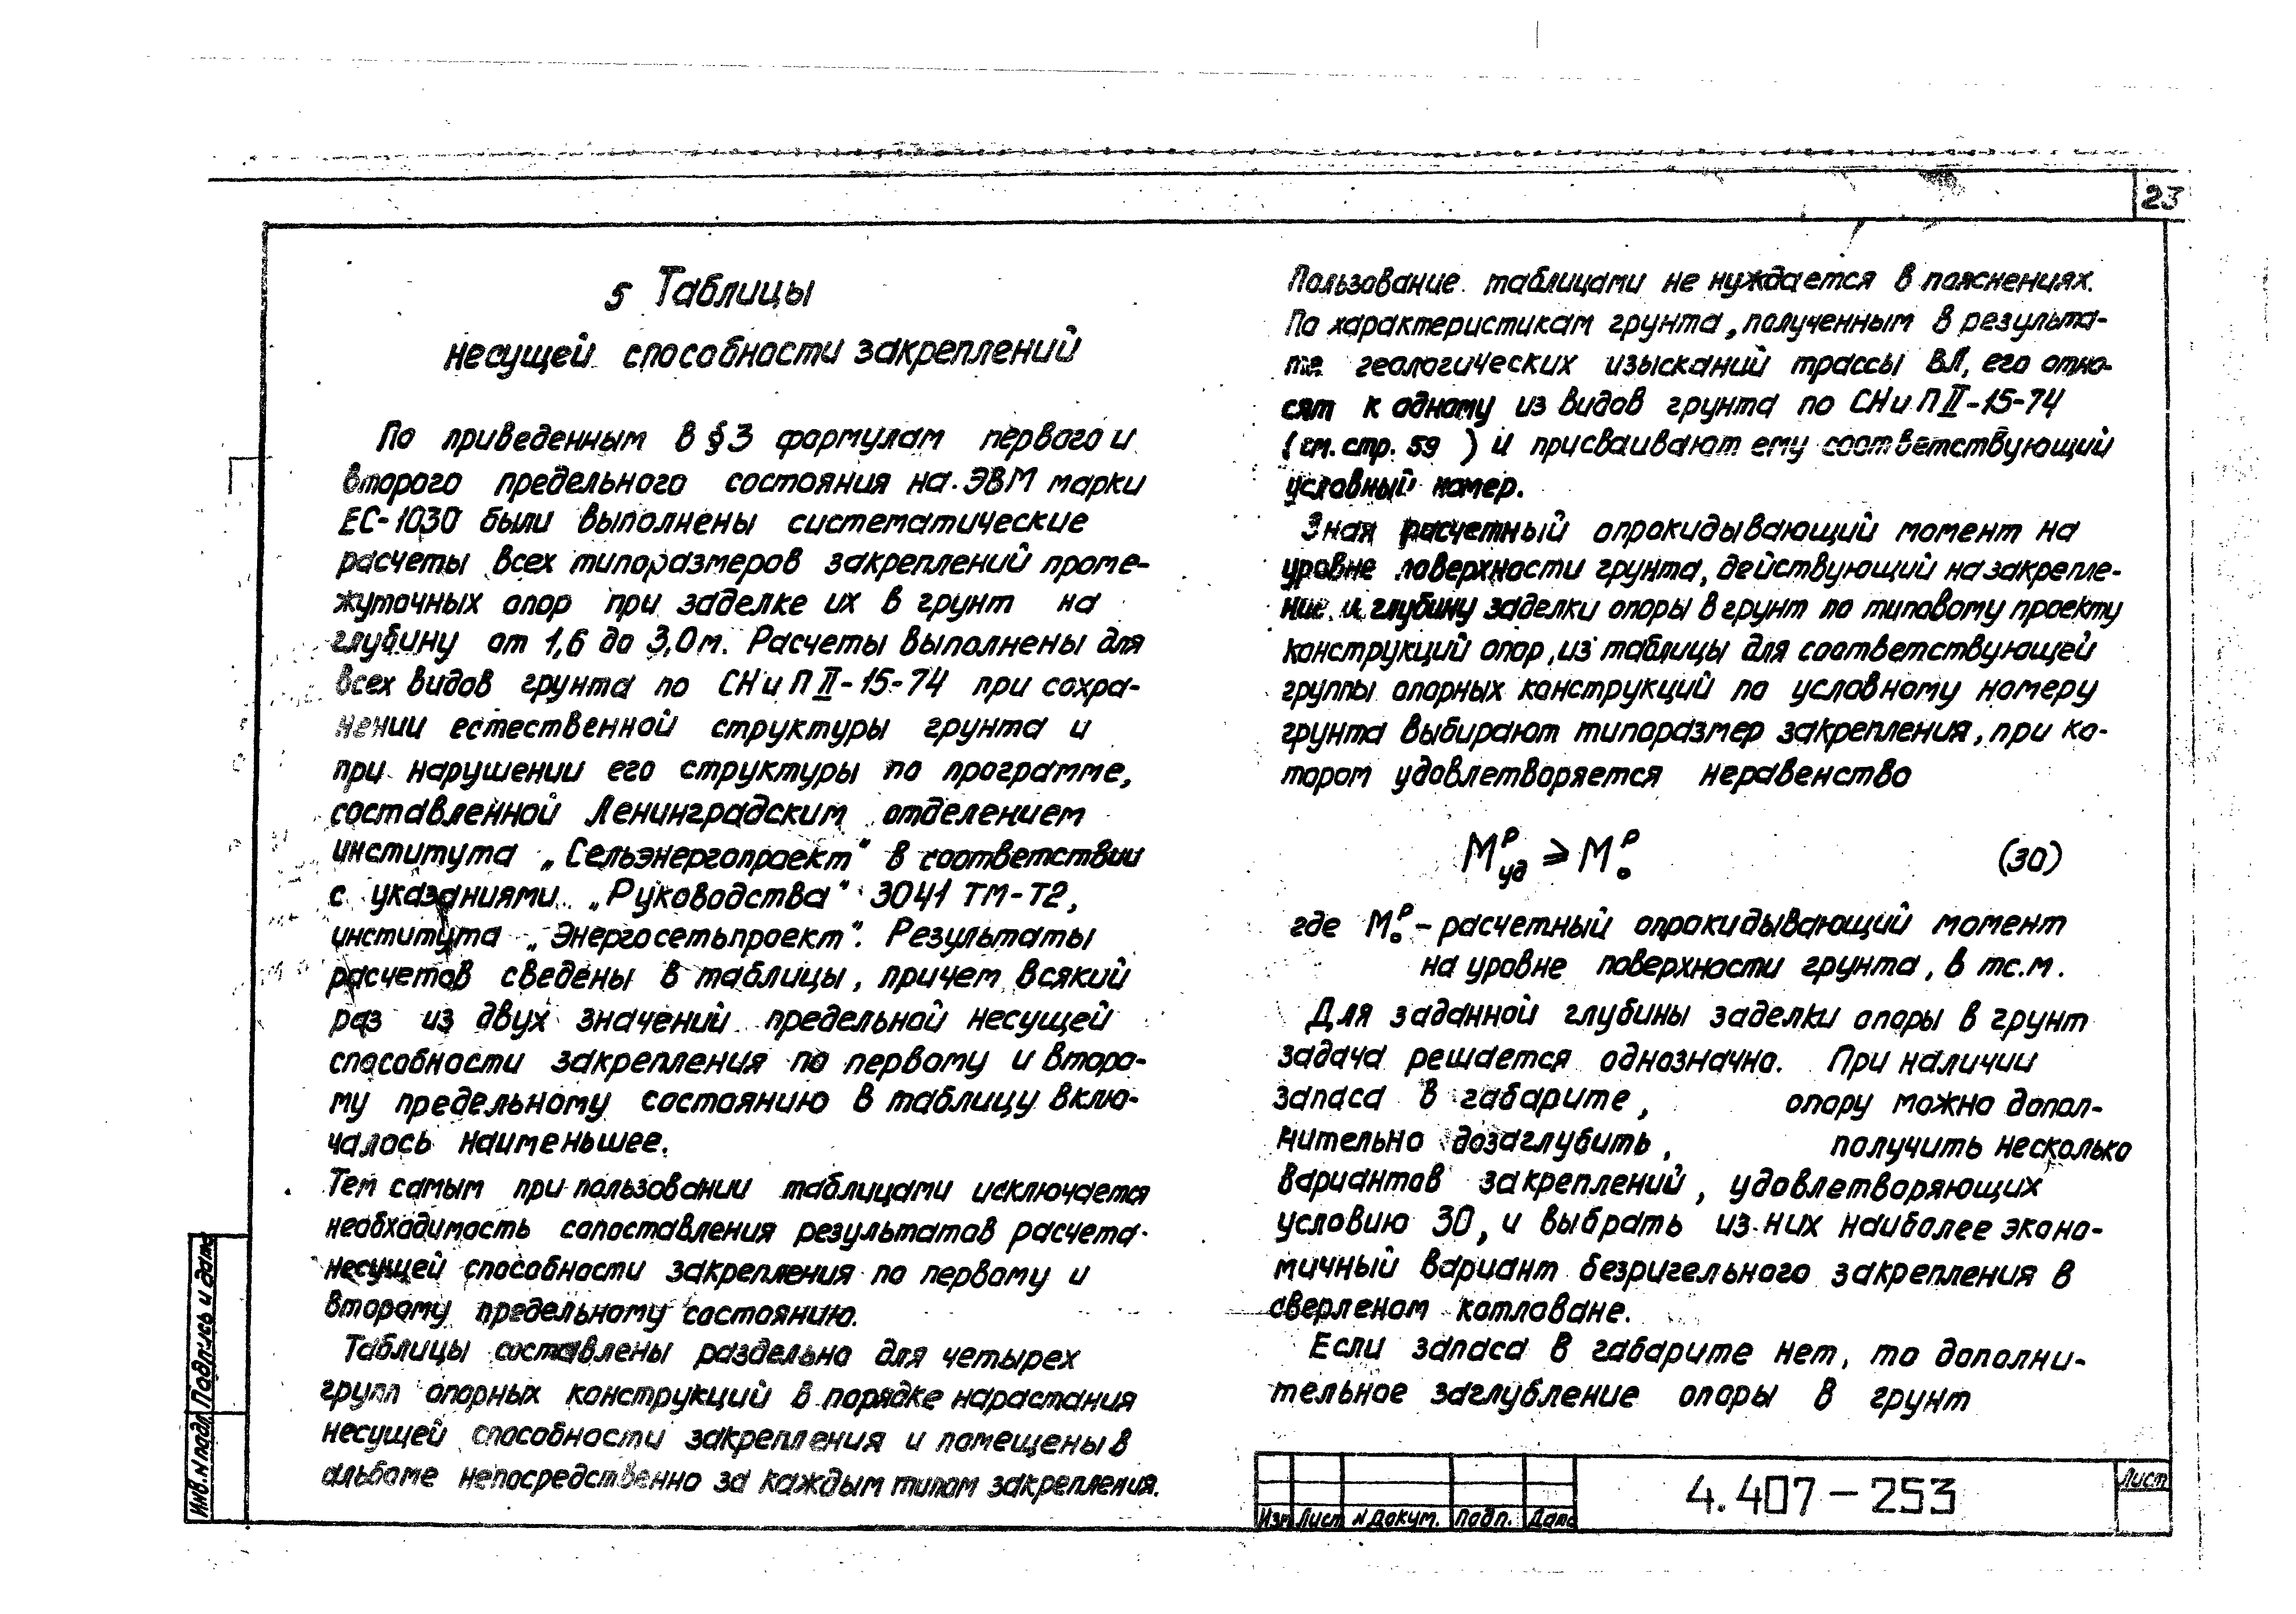 23
5 Таблицы
несущей способности закреплений
По приведенным в §3 формулам первого и
второго предельного состояния на ЭВМ марки
ЕС-1030 были выполнены систематические
расчеты всех типоразмеров закреплений проме-
жуточных опор при заделке их в грунт на
глубину от 1,6 до 3,0м. Расчеты выполнены для
всех видов грунта по СНиП II-15-74 при сохра-
нении естественной структуры грунта и
при нарушении его структуры по программе,
составленной Ленинградским отделением
института „Сельэнергопроект" в соответствии
с указаниями „Руководства" 3041 ТМ-Т2,
института „Энергосетьпроект". Результаты
расчетов сведены в таблицы, причем всякий
раз из двух значений предельной несущей
способности закрепления по первому и второ-
му предельному состоянию в таблицу вклю-
чалось наименьшее.
Тем самым при пользовании таблицами исключается
необходимость сопоставления результатов расчета
несущей способности закрепления по первому и
второму предельному состоянию.
Таблицы составлены раздельно для четырех
групп опорных конструкций в порядке нарастания
несущей способности закрепления и помещены в
альбоме непосредственно за каждым типом закрепления.
Пользование таблицами не нуждается в пояснениях.
По характеристикам грунта, полученным в результа-
те геологических изысканий трассы ВЛ, его отно-
сят к одному из видов грунта по СНиП II-15-74
(см. стр. 59 ) и присваивают ему соответствующий
условный номер.
Зная расчетный опрокидывающий момент на
уровне поверхности грунта, действующий на закрепле-
ние и глубину заделки опоры в грунт по типовому проекту
конструкций опор, из таблицы для соответствующей
группы опорных конструкций по условному номеру
грунта выбирают типоразмер закрепления, при ко-
тором удовлетворяется неравенство
Mᵖуд ⩾ Mᵖо (30)
где Mᵖо - расчетный опрокидывающий момент
на уровне поверхности грунта, в тс.м.
Для заданной глубины заделки опоры в грунт
задача решается однозначно. При наличии
запаса в габарите, опору можно допол-
нительно дозаглубить, получить несколько
вариантов закреплений, удовлетворяющих
условию 30, и выбрать из них наиболее эконо-
мичный вариант безригельного закрепления в
сверленом котловане.
Если запаса в габарите нет, то дополни-
тельное заглубление опоры в грунт
Инв.N подл. Подпись и дата
Изм Лист N Докум. Подп. Дата
4.407-253
Лист